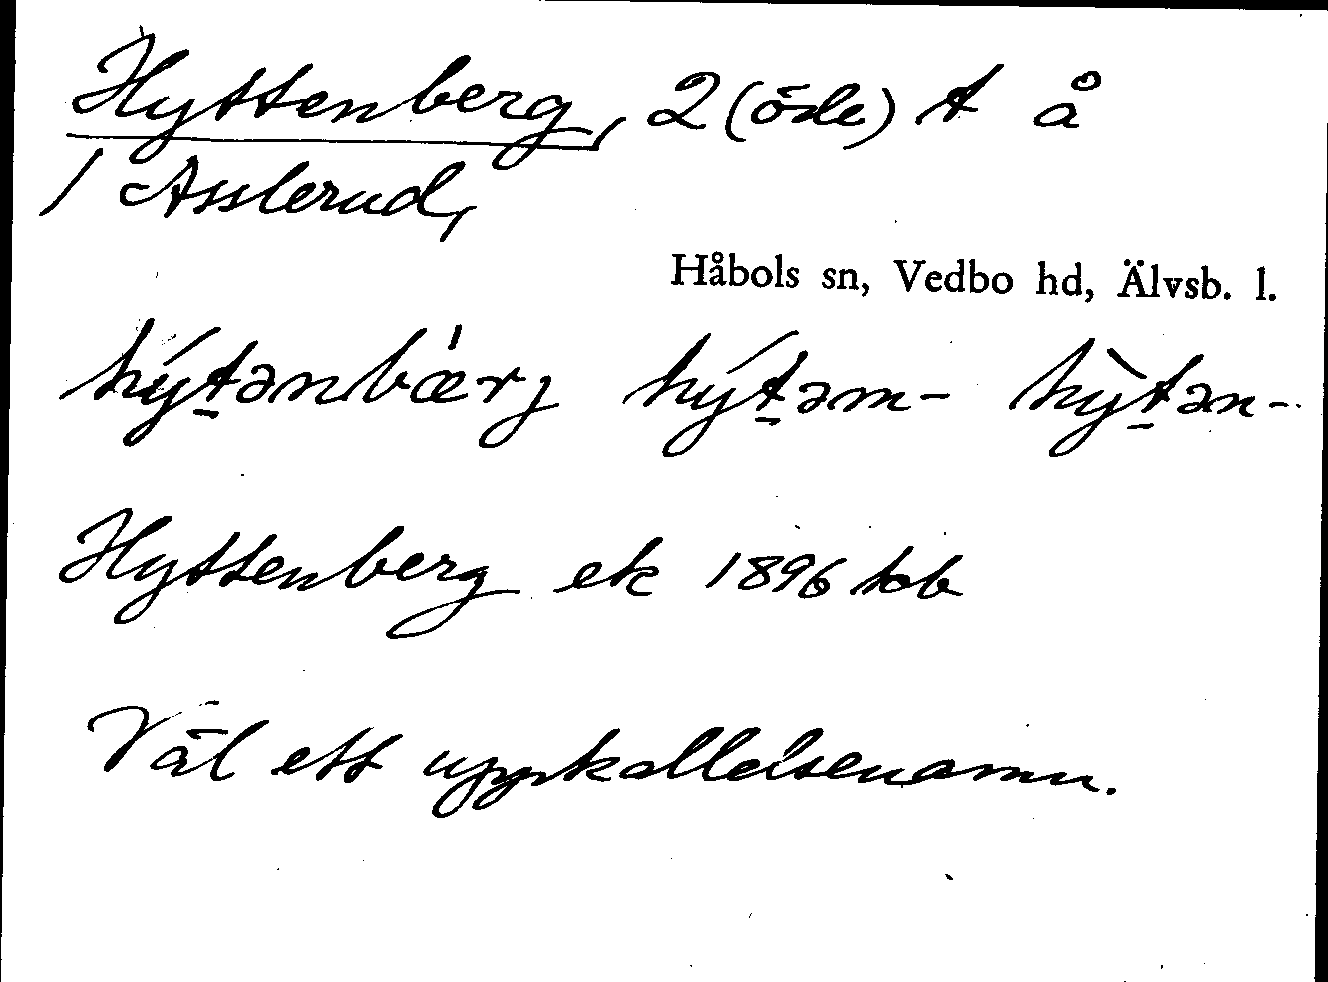 Hyttenberg, 2 (öde) t å
1 Asslerud,
Håbols sn, Vedbo hd, Älvsb. l.
hýt̲ənbæ̀rj hýt̲əm- hỳt̲ən-
Hyttenberg ek 1896 kob
Väl ett uppkallelsenamn.